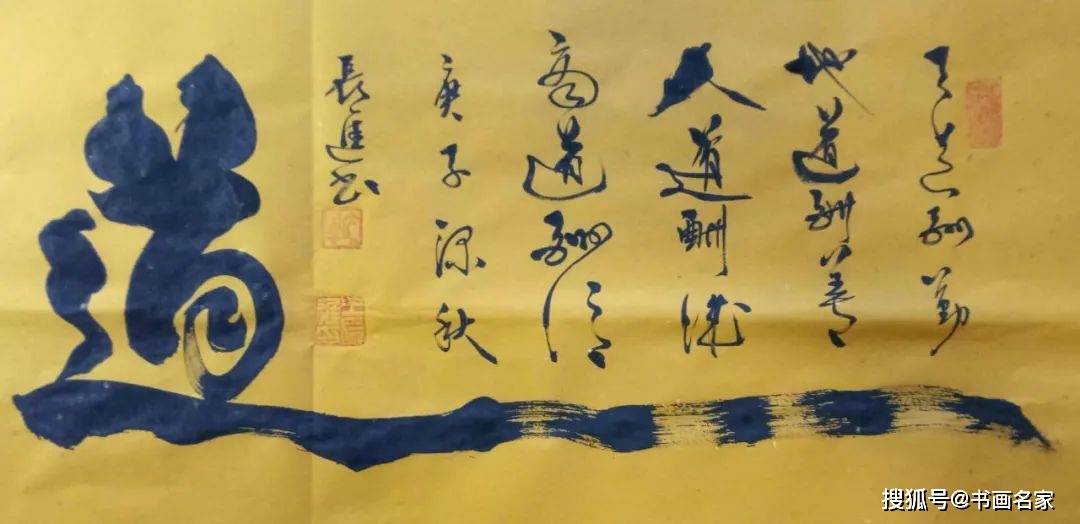 天道酬勤
地道酬善
人道酬诚
商道酬信
庚子深秋
長進书
道
搜狐号@书画名家